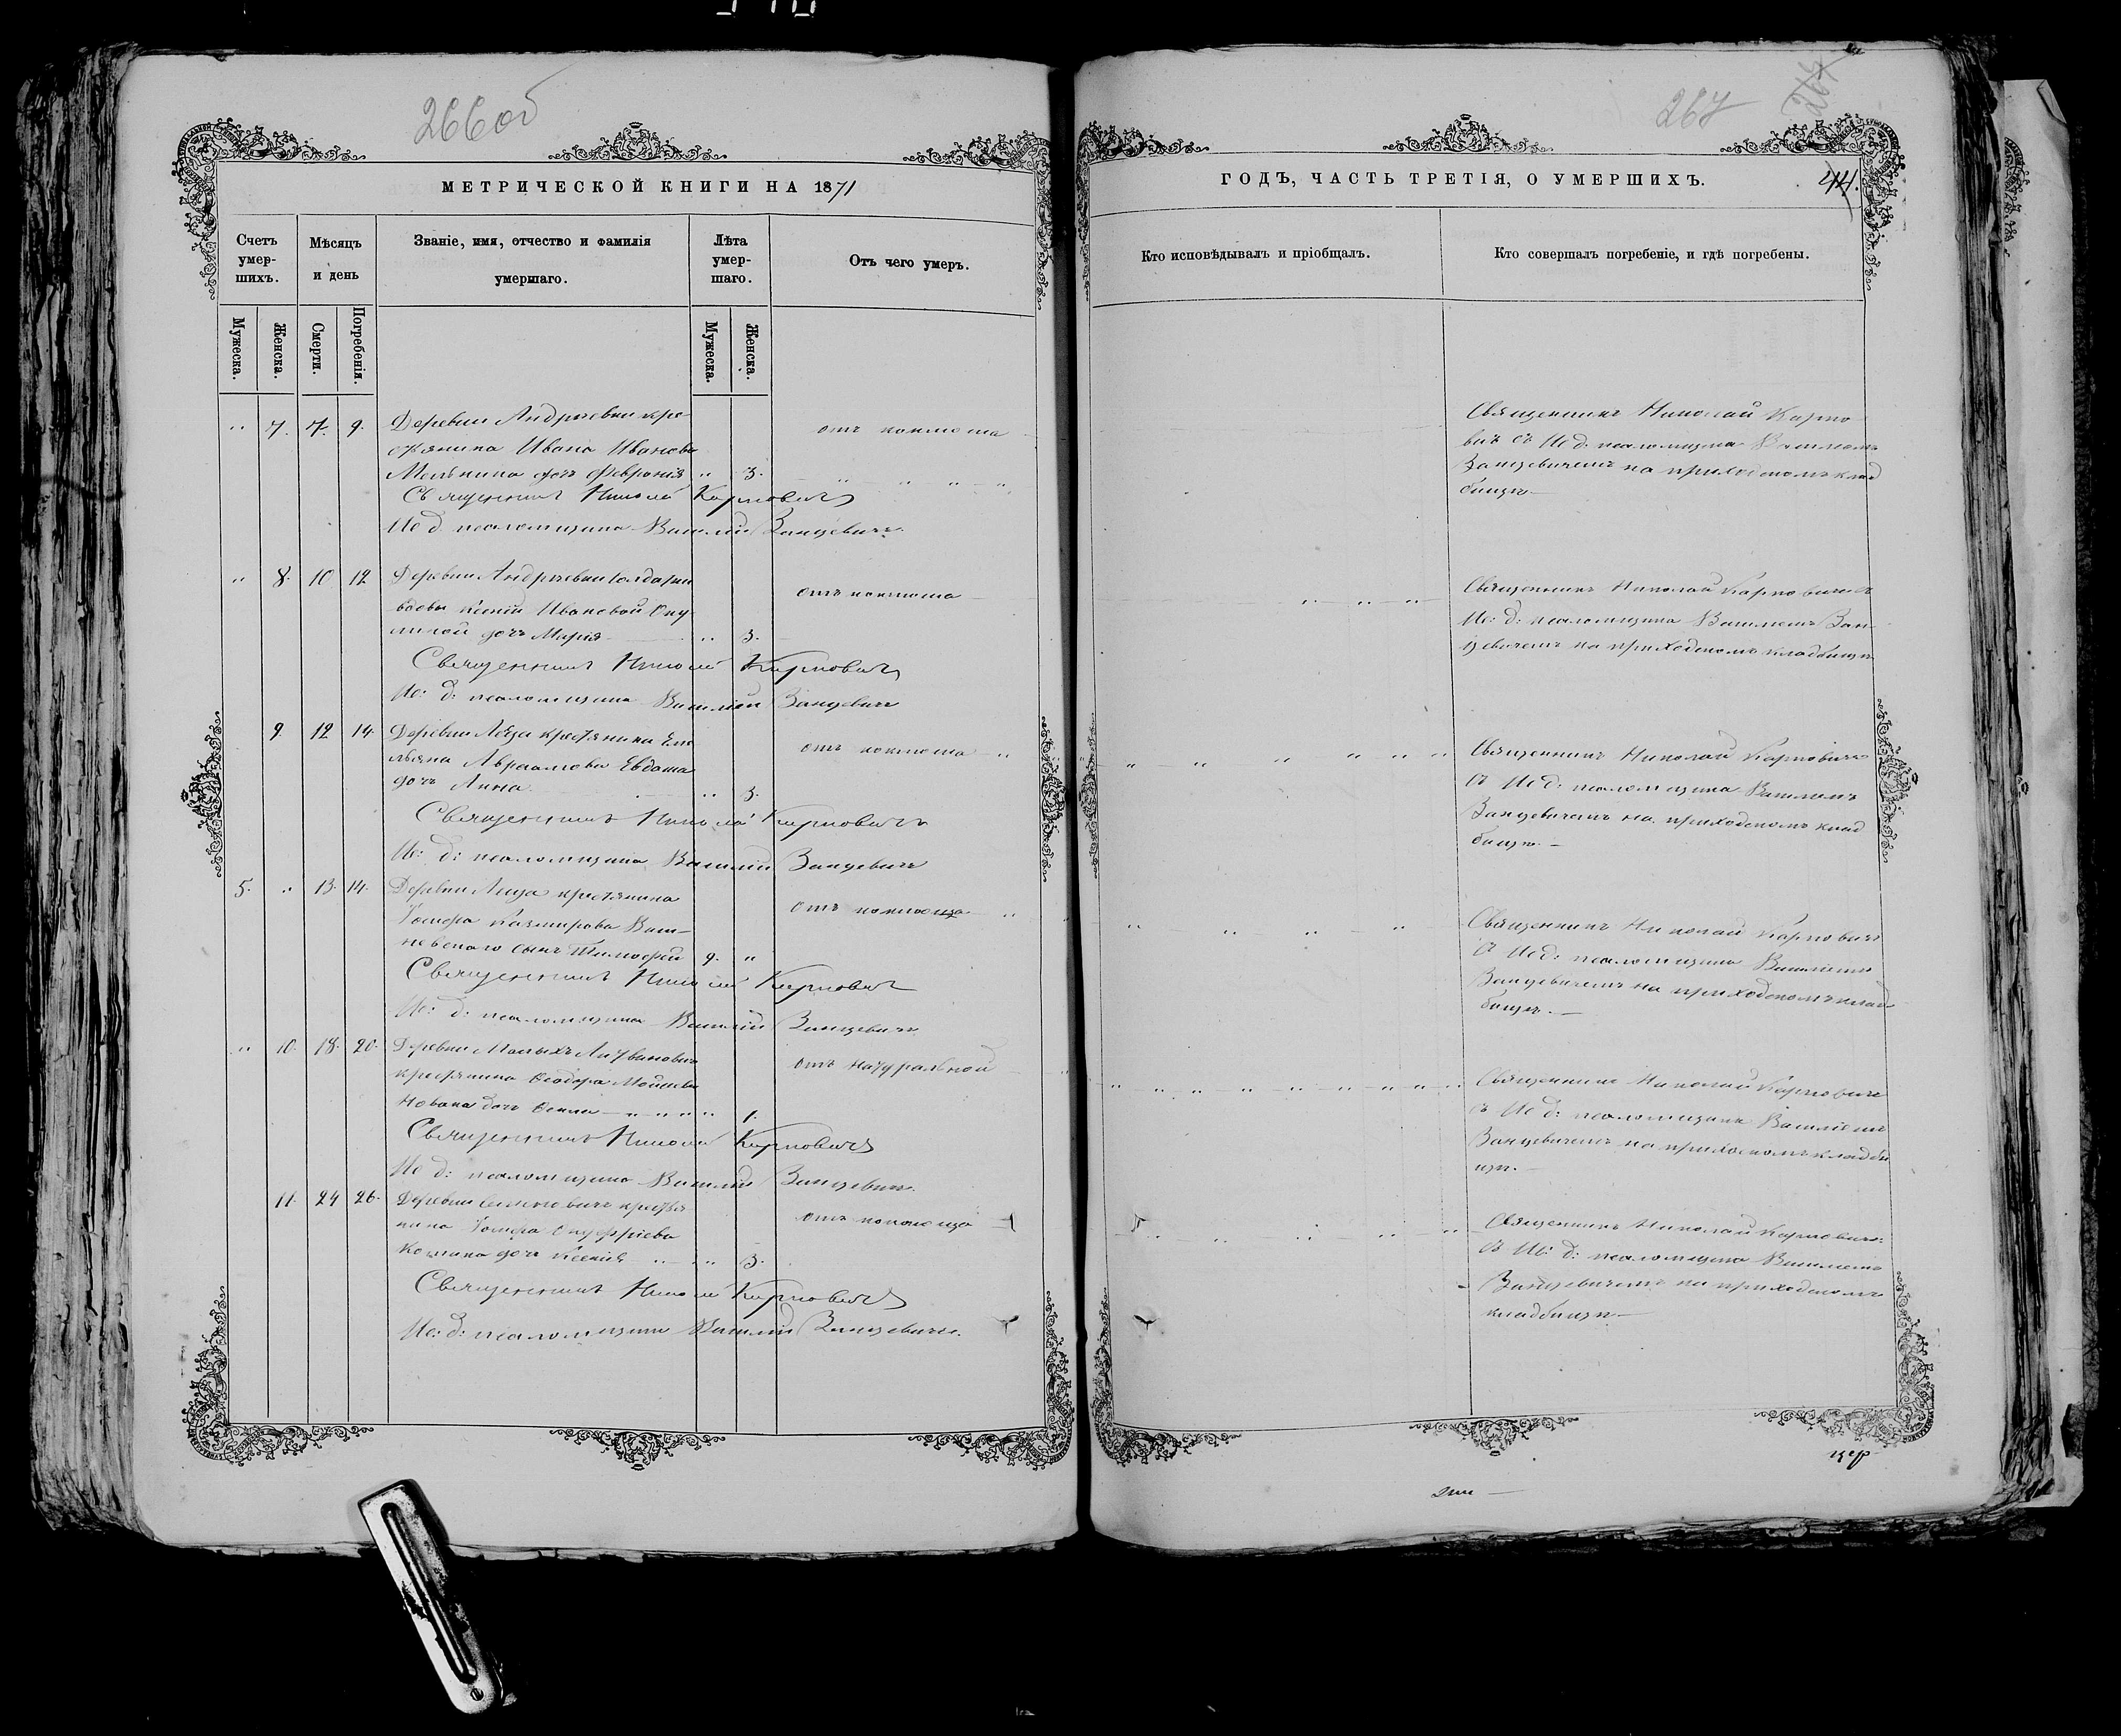 266 об
МЕТРИЧЕСКОЙ КНИГИ НА 1871
Счетъ умер-шихъ.
Мѣсяцъ и день
Званіе, имя, отчество и фамилія умершаго.
Лѣта умер-шаго.
Отъ чего умеръ.
Мужеска.
Женска.
Смерти.
Погребенія.
Мужеска.
Женска.
7. 7. 9. Деревни Андреевки кре-
стянина Ивана Иванова
Мельника дочь Февронія 3.
отъ коклюша
Священникъ Николай Карповичъ
Ис. д. псаломщика Василій Занцевичъ
8. 10 12 Деревни Андреевки солдатки
вдовы Ксеніи Ивановой
дочь Марія 3.
отъ коклюша
Священникъ Николай Карповичъ
Ис: д: псаломщика Василій Занцевичъ
9. 12 14. Деревни крестянина Еме
льяна Авраамова Евдаша
дочь Анна 3.
отъ коклюша
Священникъ Николай Карповичъ
Ис: д: псаломщика Василій Занцевичъ
5. 13. 14. Деревни крестянина
Іосифа Казимирова Виш-
невскаго сынъ Тимофей 9.
отъ коклюша
Священникъ Николай Карповичъ
Ис: д: псаломщика Василій Занцевичъ
10. 18. 20. Деревни Малыхъ
крестянина Ѳеодора
дочь 1.
отъ натуральной
Священникъ Николай Карповичъ
Ис. д: псаломщика Василій Занцевичъ
11. 24 26. Деревни Семеновичъ крестя
нина Іосифа Онуфріева
дочь Ксенія 3.
отъ коклюша
Священникъ Николай Карповичъ
Ис: д: псаломщика Василій Занцевичъ.
267
ГОДЪ, ЧАСТЬ ТРЕТІЯ, О УМЕРШИХЪ.
44.
Кто исповѣдывалъ и пріобщалъ.
Кто совершалъ погребеніе, и гдѣ погребены.
Священникъ Николай Карпо
вичъ съ Ис д. псаломщика Василіемъ
Занцевичемъ на приходскомъ клад
бищѣ.
Священникъ Николай Карповичъ съ
Ис: д: псаломщика Василіемъ Зан-
цевичемъ на приходскомъ кладбищѣ
Священникъ Николай Карповичъ
съ Ис д: псаломщика Василіемъ
Занцевичемъ на приходскомъ клад
бищѣ.
Священникъ Николай Карповичъ
съ Ис д: псаломщика Василіемъ
Занцевичемъ на приходскомъ клад
бищѣ.
Священникъ Николай Карповичъ
съ Ис д: псаломщика Василіемъ
Занцевичемъ на приходскомъ кладби
щѣ.
Священникъ Николай Карповичъ
съ Ис: д: псаломщика Василіемъ
Занцевичемъ на приходскомъ
кладбищѣ